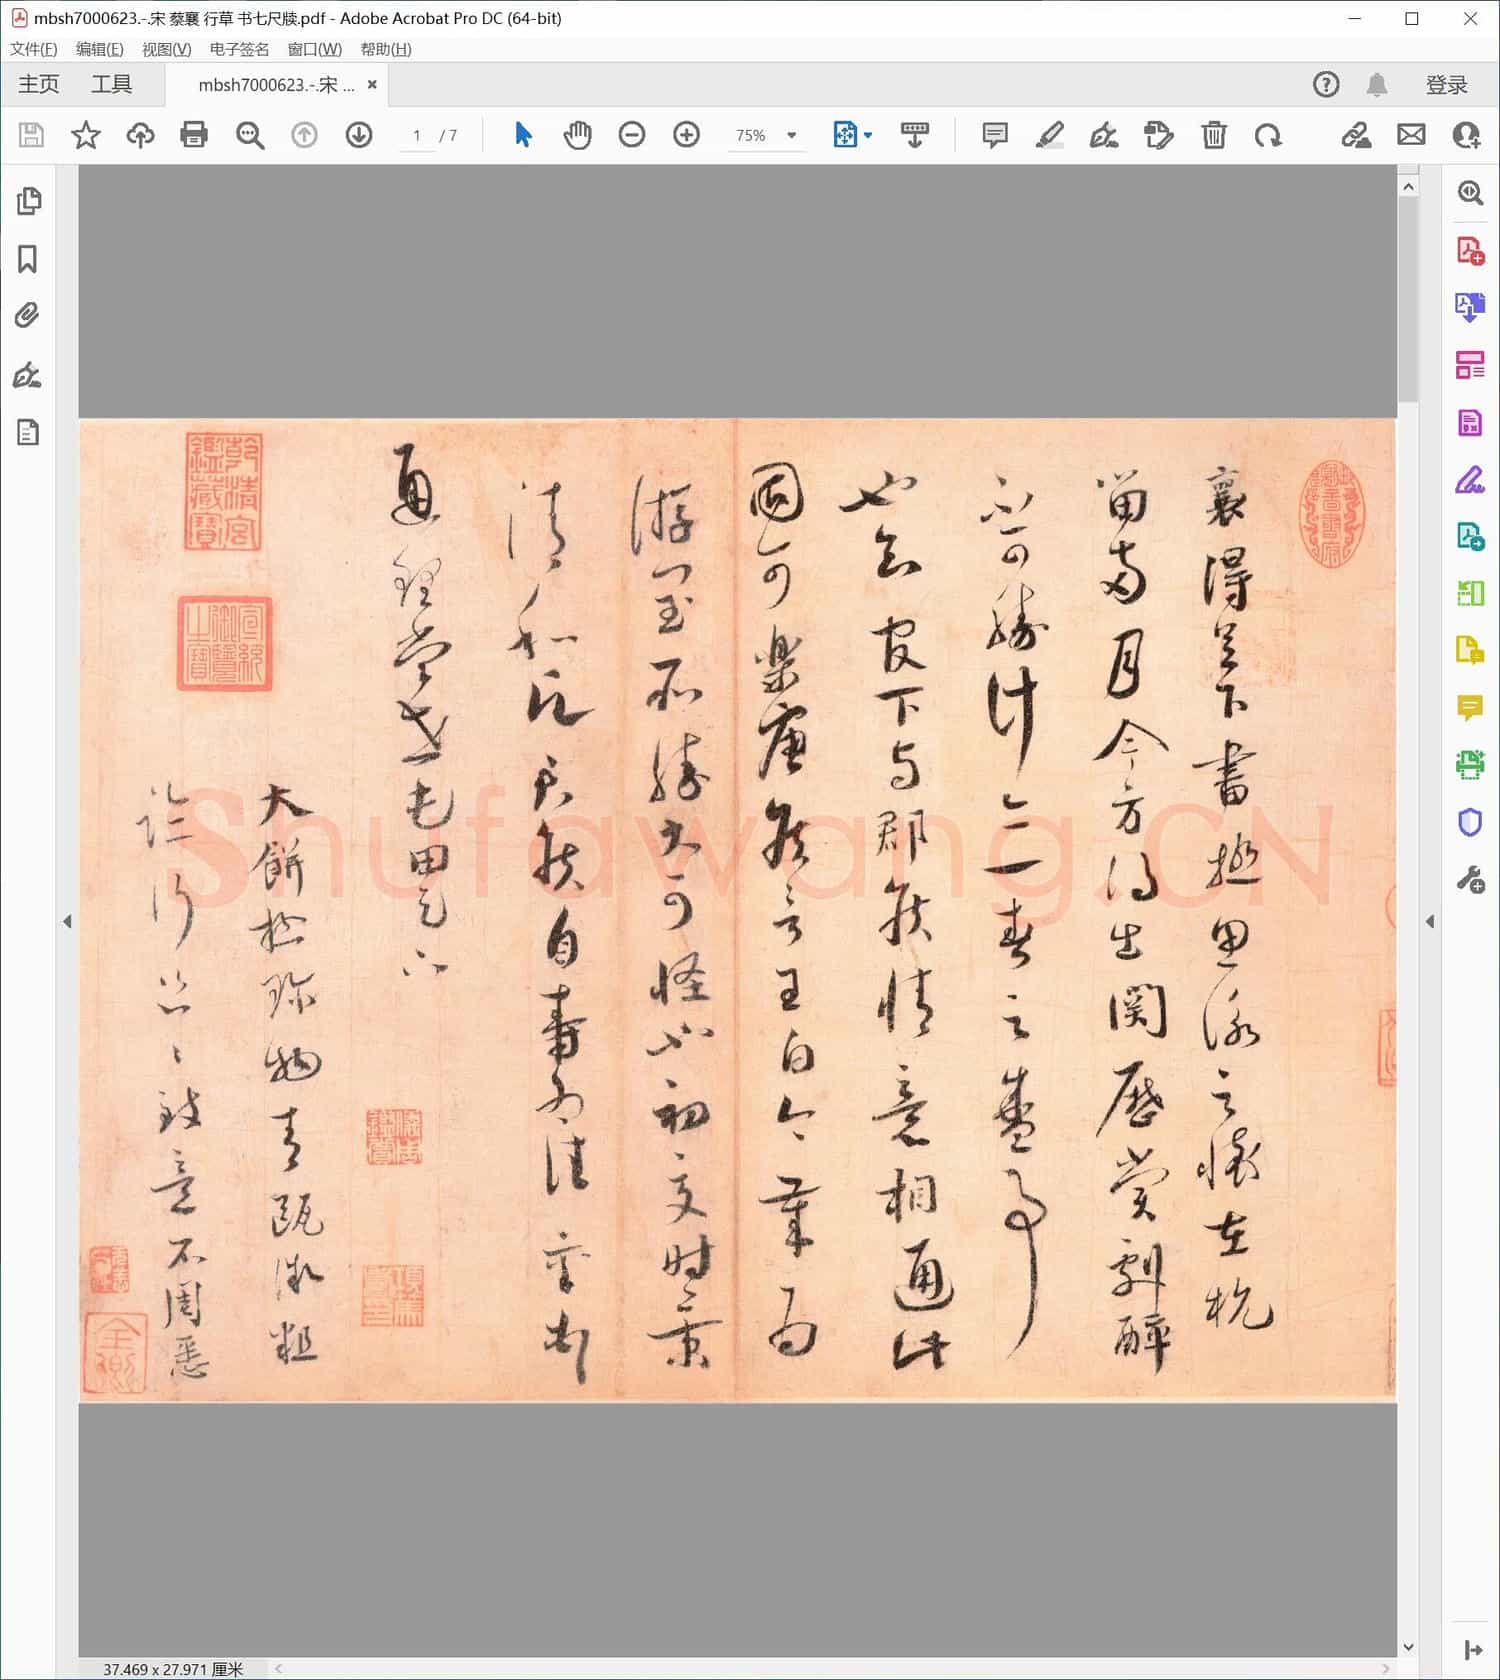 mbsh7000623.-.宋 蔡襄 行草 书七尺牍.pdf - Adobe Acrobat Pro DC (64-bit)
文件(F) 编辑(E) 视图(V) 电子签名 窗口(W) 帮助(H)
主页 工具 mbsh7000623.-.宋 ... × 登录
1 / 7 75%
襄得足下書極思詠之懷在杭
留兩月今方得出関歷賞劇醉
不可勝計亦一春之盛事
也知官下与郡侯情意相通此
固可樂唐侯言王白今歲為
游閏所勝大可怪也初夏時景
清和願君侯自壽為佳襄頓首
通理當世屯田足下
大餅極珍物青甌微粗
臨行匆匆致意不周悉
乾清宮鑑藏寶
宣統御覽之寶
Shufawang.CN
37.469 x 27.971 厘米